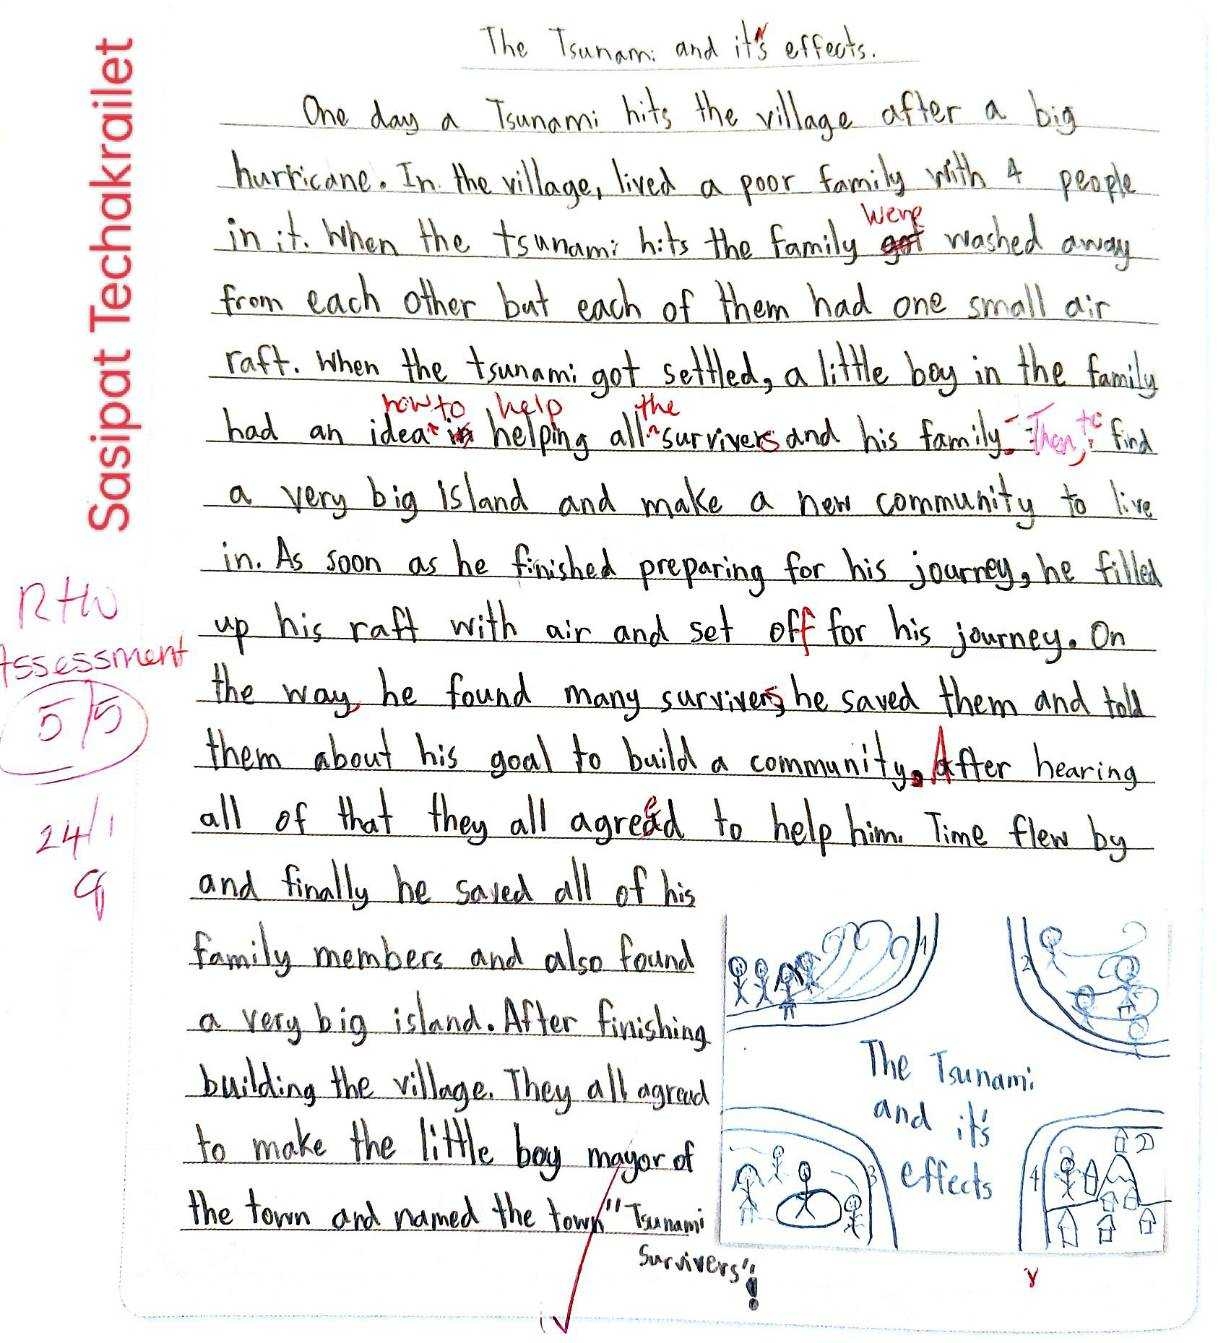 Sasipat Techakrailet
The Tsunami and it's effects.
One day a Tsunami hits the village after a big
hurricane. In the village, lived a poor family with 4 people
were
in it. When the tsunami hits the family got washed away
from each other but each of them had one small air
raft. When the tsunami got settled, a little boy in the family
how to help the
had an idea in helping all survivers and his family. Then, to find
a very big island and make a new community to live
in. As soon as he finished preparing for his journey, he filled
up his raft with air and set off for his journey. On
the way, he found many survivers, he saved them and told
them about his goal to build a community. After hearing
all of that they all agreed to help him. Time flew by
and finally he saved all of his
family members and also found
a very big island. After finishing
building the village. They all agread
to make the little boy mayor of
the town and named the town "Tsunami
Survivers"!
RHW
Assessment
5/5
24/1
9
1
2
The Tsunami
and it's
effects
3
4